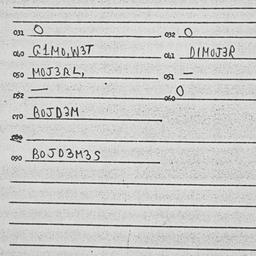 031 O 032 O
040 G1MO,W3T 041 DIMOJ3R
050 MOJ3RL, 051 —
052 — 060 O
070 BOJD3M
080
090 BOJD3M3S